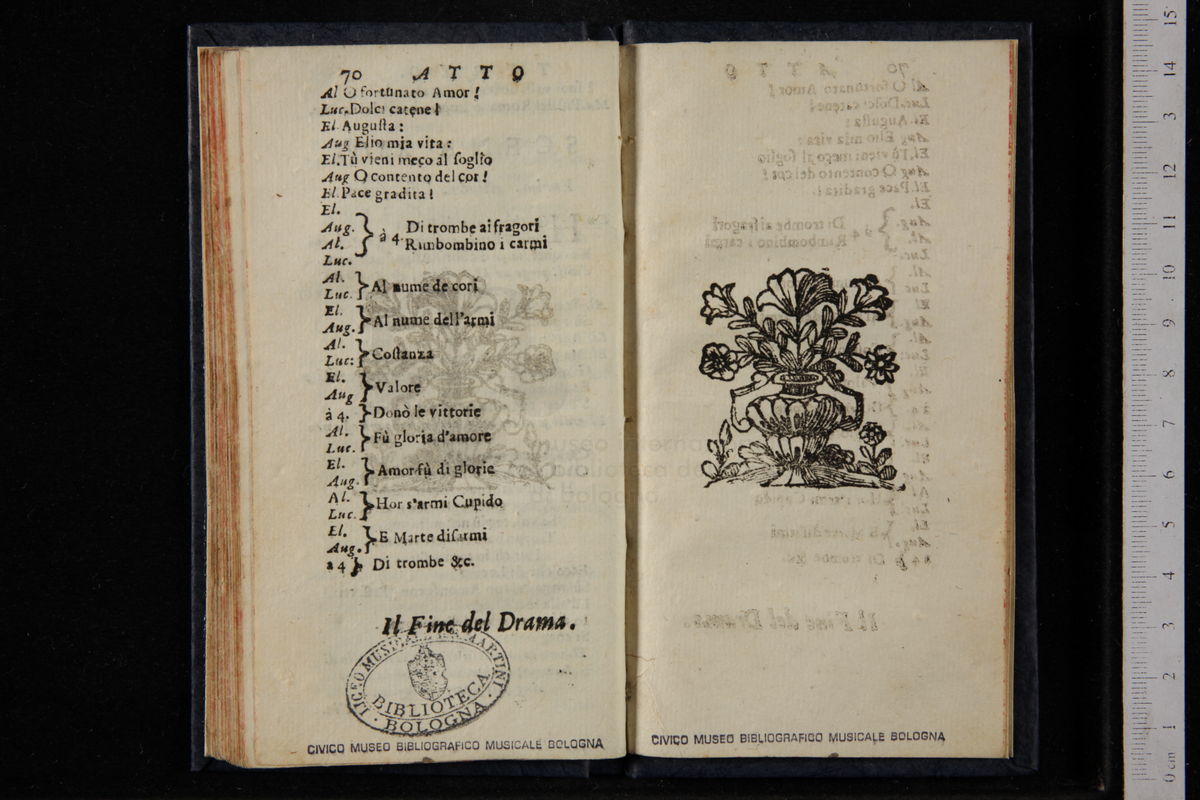 70 ATTO
Al O fortunato Amor!
Luc. Dolci catene!
El. Augusta:
Aug Elio mia vita:
El. Tù vieni meco al soglio
Aug O contento del cor!
El. Pace gradita!
El.
Aug. à 4. Di trombe ai fragori
Al. Rimbombino i carmi
Luc.
Al.
Luc. Al nume de cori
El.
Aug. Al nume dell'armi
Al.
Luc: Costanza
El.
Aug Valore
à 4. Donò le vittorie
Al.
Luc. Fù gloria d'amore
El.
Aug. Amor fù di glorie
Al.
Luc. Hor s'armi Cupido
El.
Aug. E Marte disarmi
à 4 Di trombe &c.
Il Fine del Drama.
LICEO MUSICALE MARTINI
BIBLIOTECA
BOLOGNA
CIVICO MUSEO BIBLIOGRAFICO MUSICALE BOLOGNA
CIVICO MUSEO BIBLIOGRAFICO MUSICALE BOLOGNA
museo interna
biblioteca de
di bologna
15
14
3
12
11
10
9
8
7
6
5
4
3
2
1
0 cm